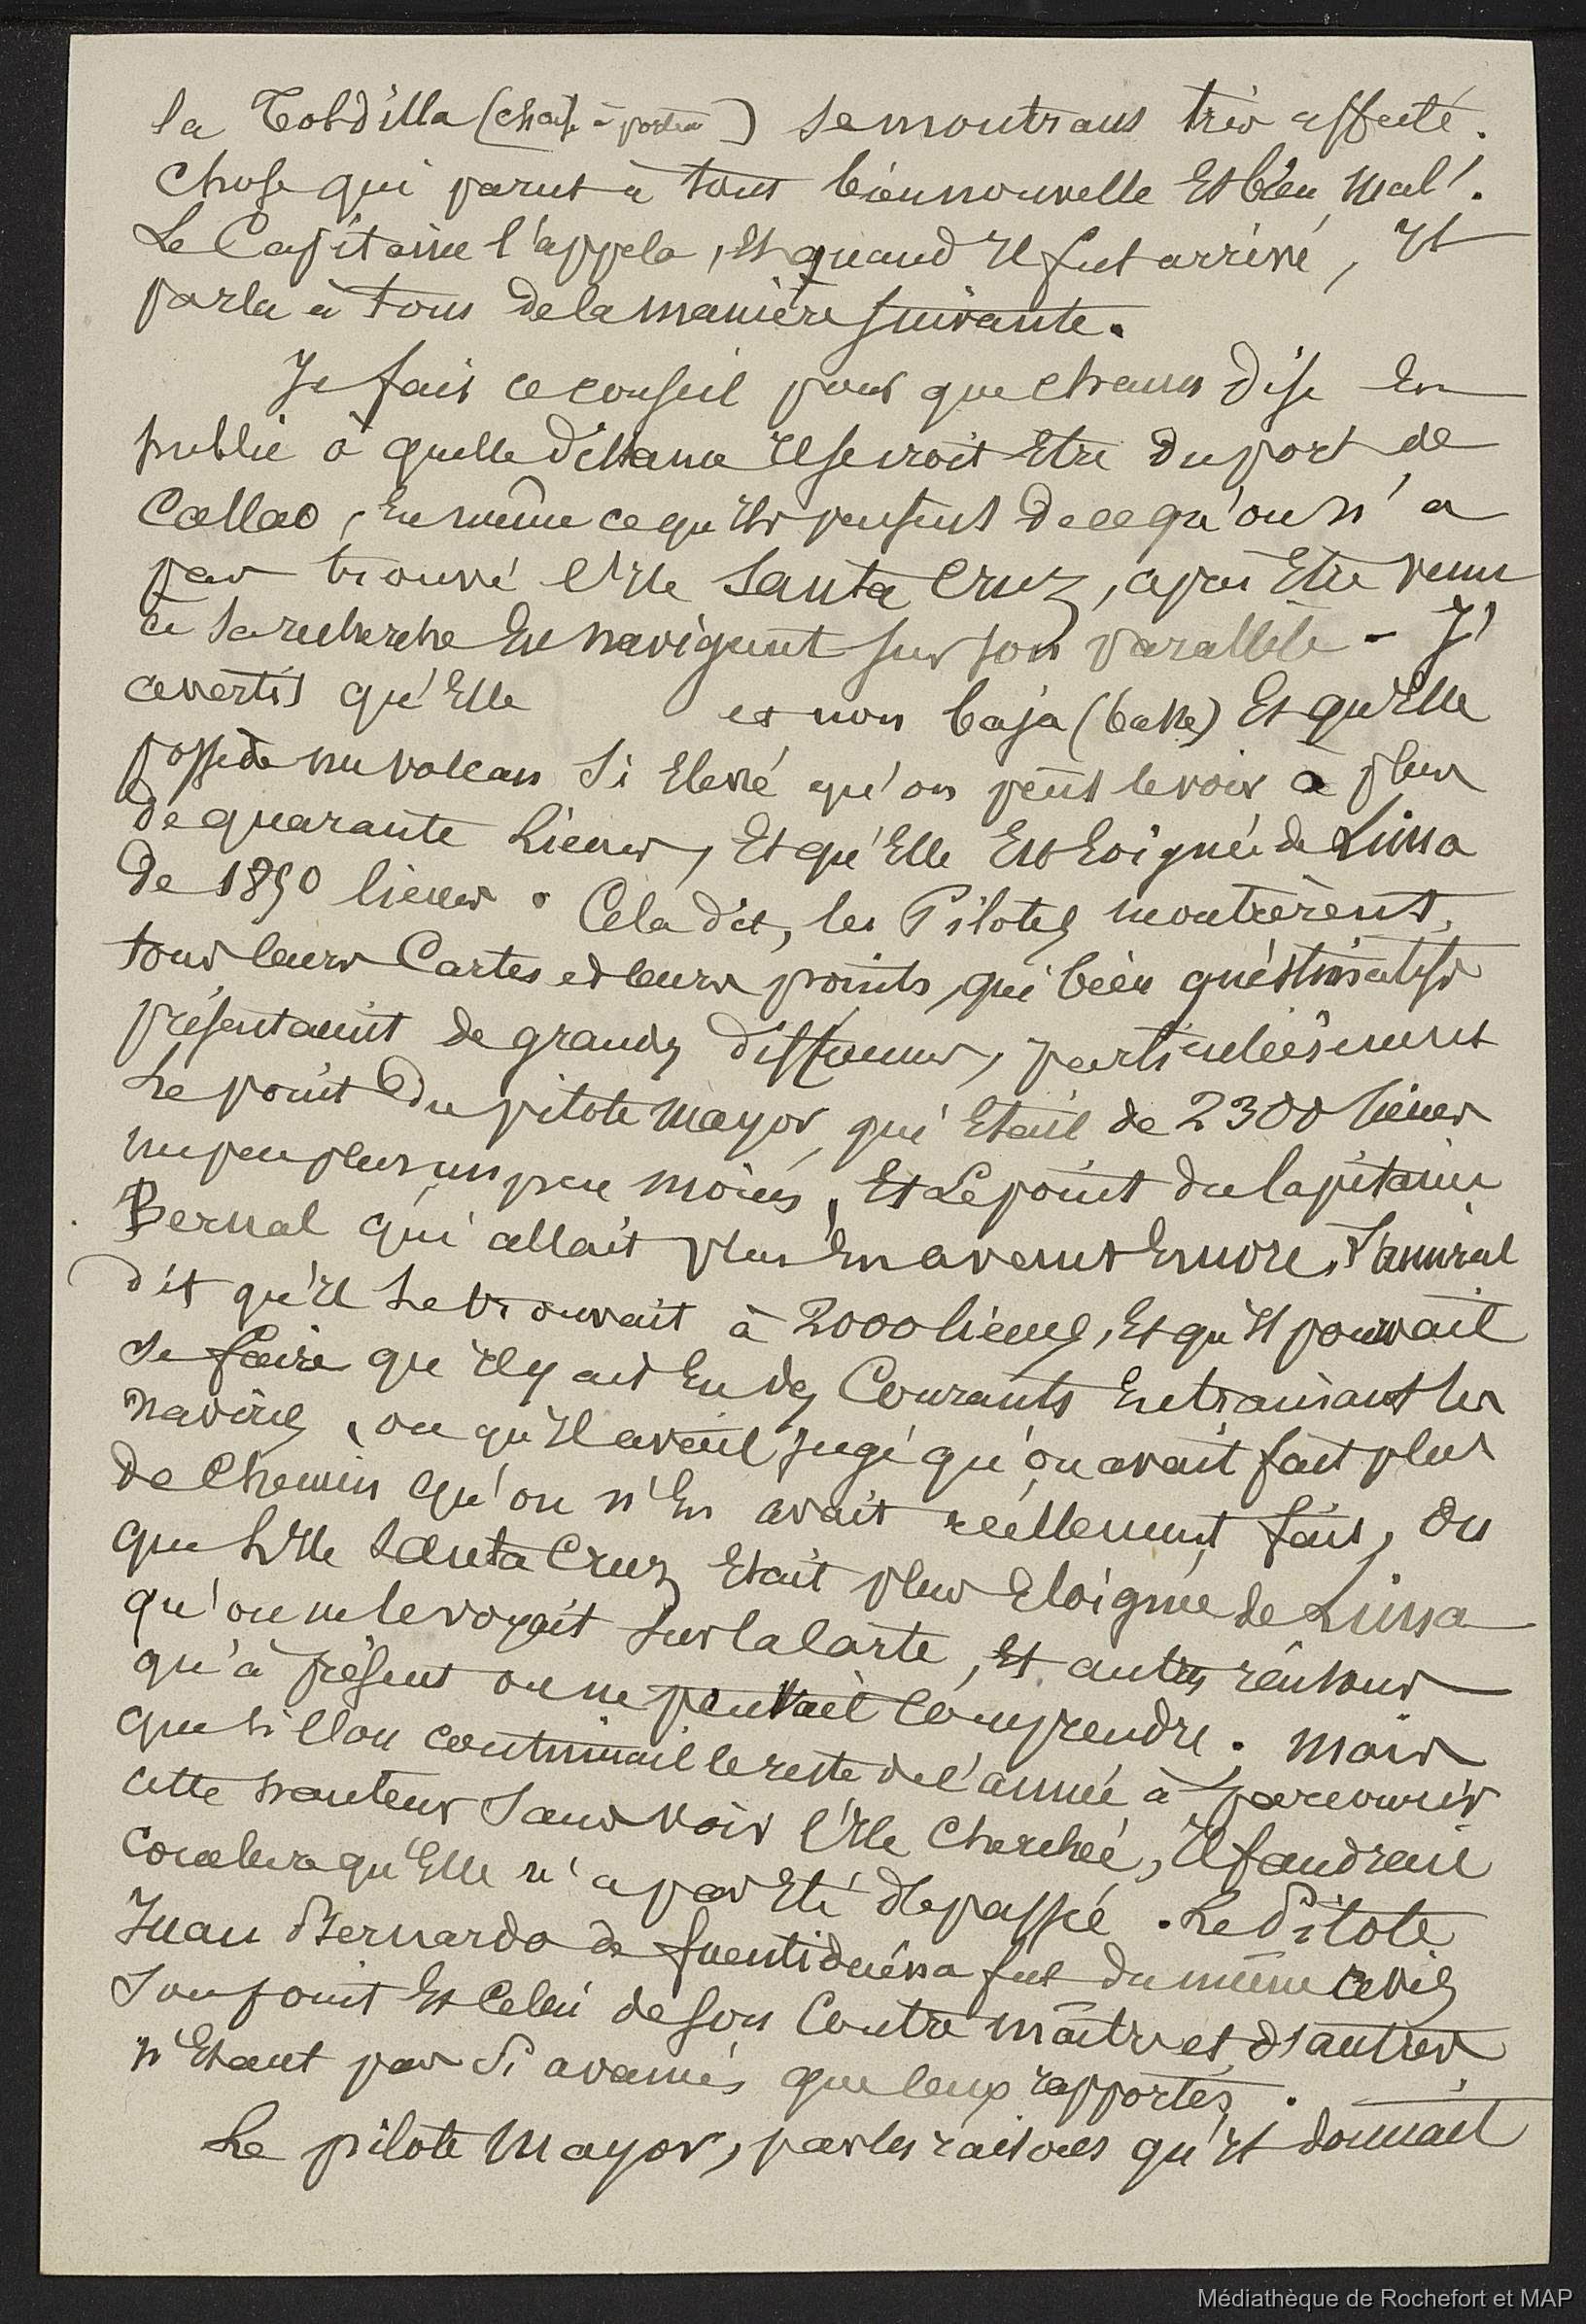 la Toldilla (chaise à porteur) se montrant très affecté.
Chose qui parut à tous bien nouvelle Et bien mal!
Le Capitaine l'appela, Et quand Il fut arrivé, Il
parla à tous de la manière suivante.
Je fais ce conseil pour que chacun dise En
public à quelle distance Il se croit Etre du port de
Callao, En même ce qu'Ils pensent de ce qu'on n'a
pas trouvé l'Ile Santa Cruz, après Etre venu
à sa recherche En navigant sur son parallèle - J'
avertis qu'Elle est non baja (basse) Et qu'Elle
possède un volcan Si Elevé qu'on peut le voir à plus
de quarante Lieues, Et qu'Elle Est Eloignée de Lima
de 1850 lieues. Cela dit, les Pilotes montrèrent,
tous leurs Cartes et leurs points, qui bien qu'estimatifs
présentaient de grandes différences, particulièrement
Le point du pilote Mayor, qui Etait de 2300 lieues
un peu plus un peu moins, Et Le point du Capitaine
Bernal qui allait plus En avant Encore. L'amiral
dit qu'Il se trouvait à 2000 lieues, Et qu'Il pouvait
se faire qu'Il y ait Eu des Courants Entrainant les
navires, ou qu'Il avait jugé qu'on avait fait plus
de Chemin qu'on n'En avait réellement fait, Ou
que l'Ile Santa Cruz Etait plus Eloignée de Lima
qu'on ne le voyait sur la Carte, Et autres raisons
qu'à présent on ne pouvait Comprendre. Mais
que si l'on continuait le reste de l'année à parcourir
cette hauteur Sans voir l'Ile Cherchée, Il faudrait
conclure qu'Elle n'a pas Eté dépassée. Le Pilote
Juan Bernardo de fuentidueña fut du même avis
Son point Et Celui de son Contre maître et d'autres
n'Etant pas Si avancés que leurs rapportés.
Le pilote Mayor, par les raisons qu'Il donnait